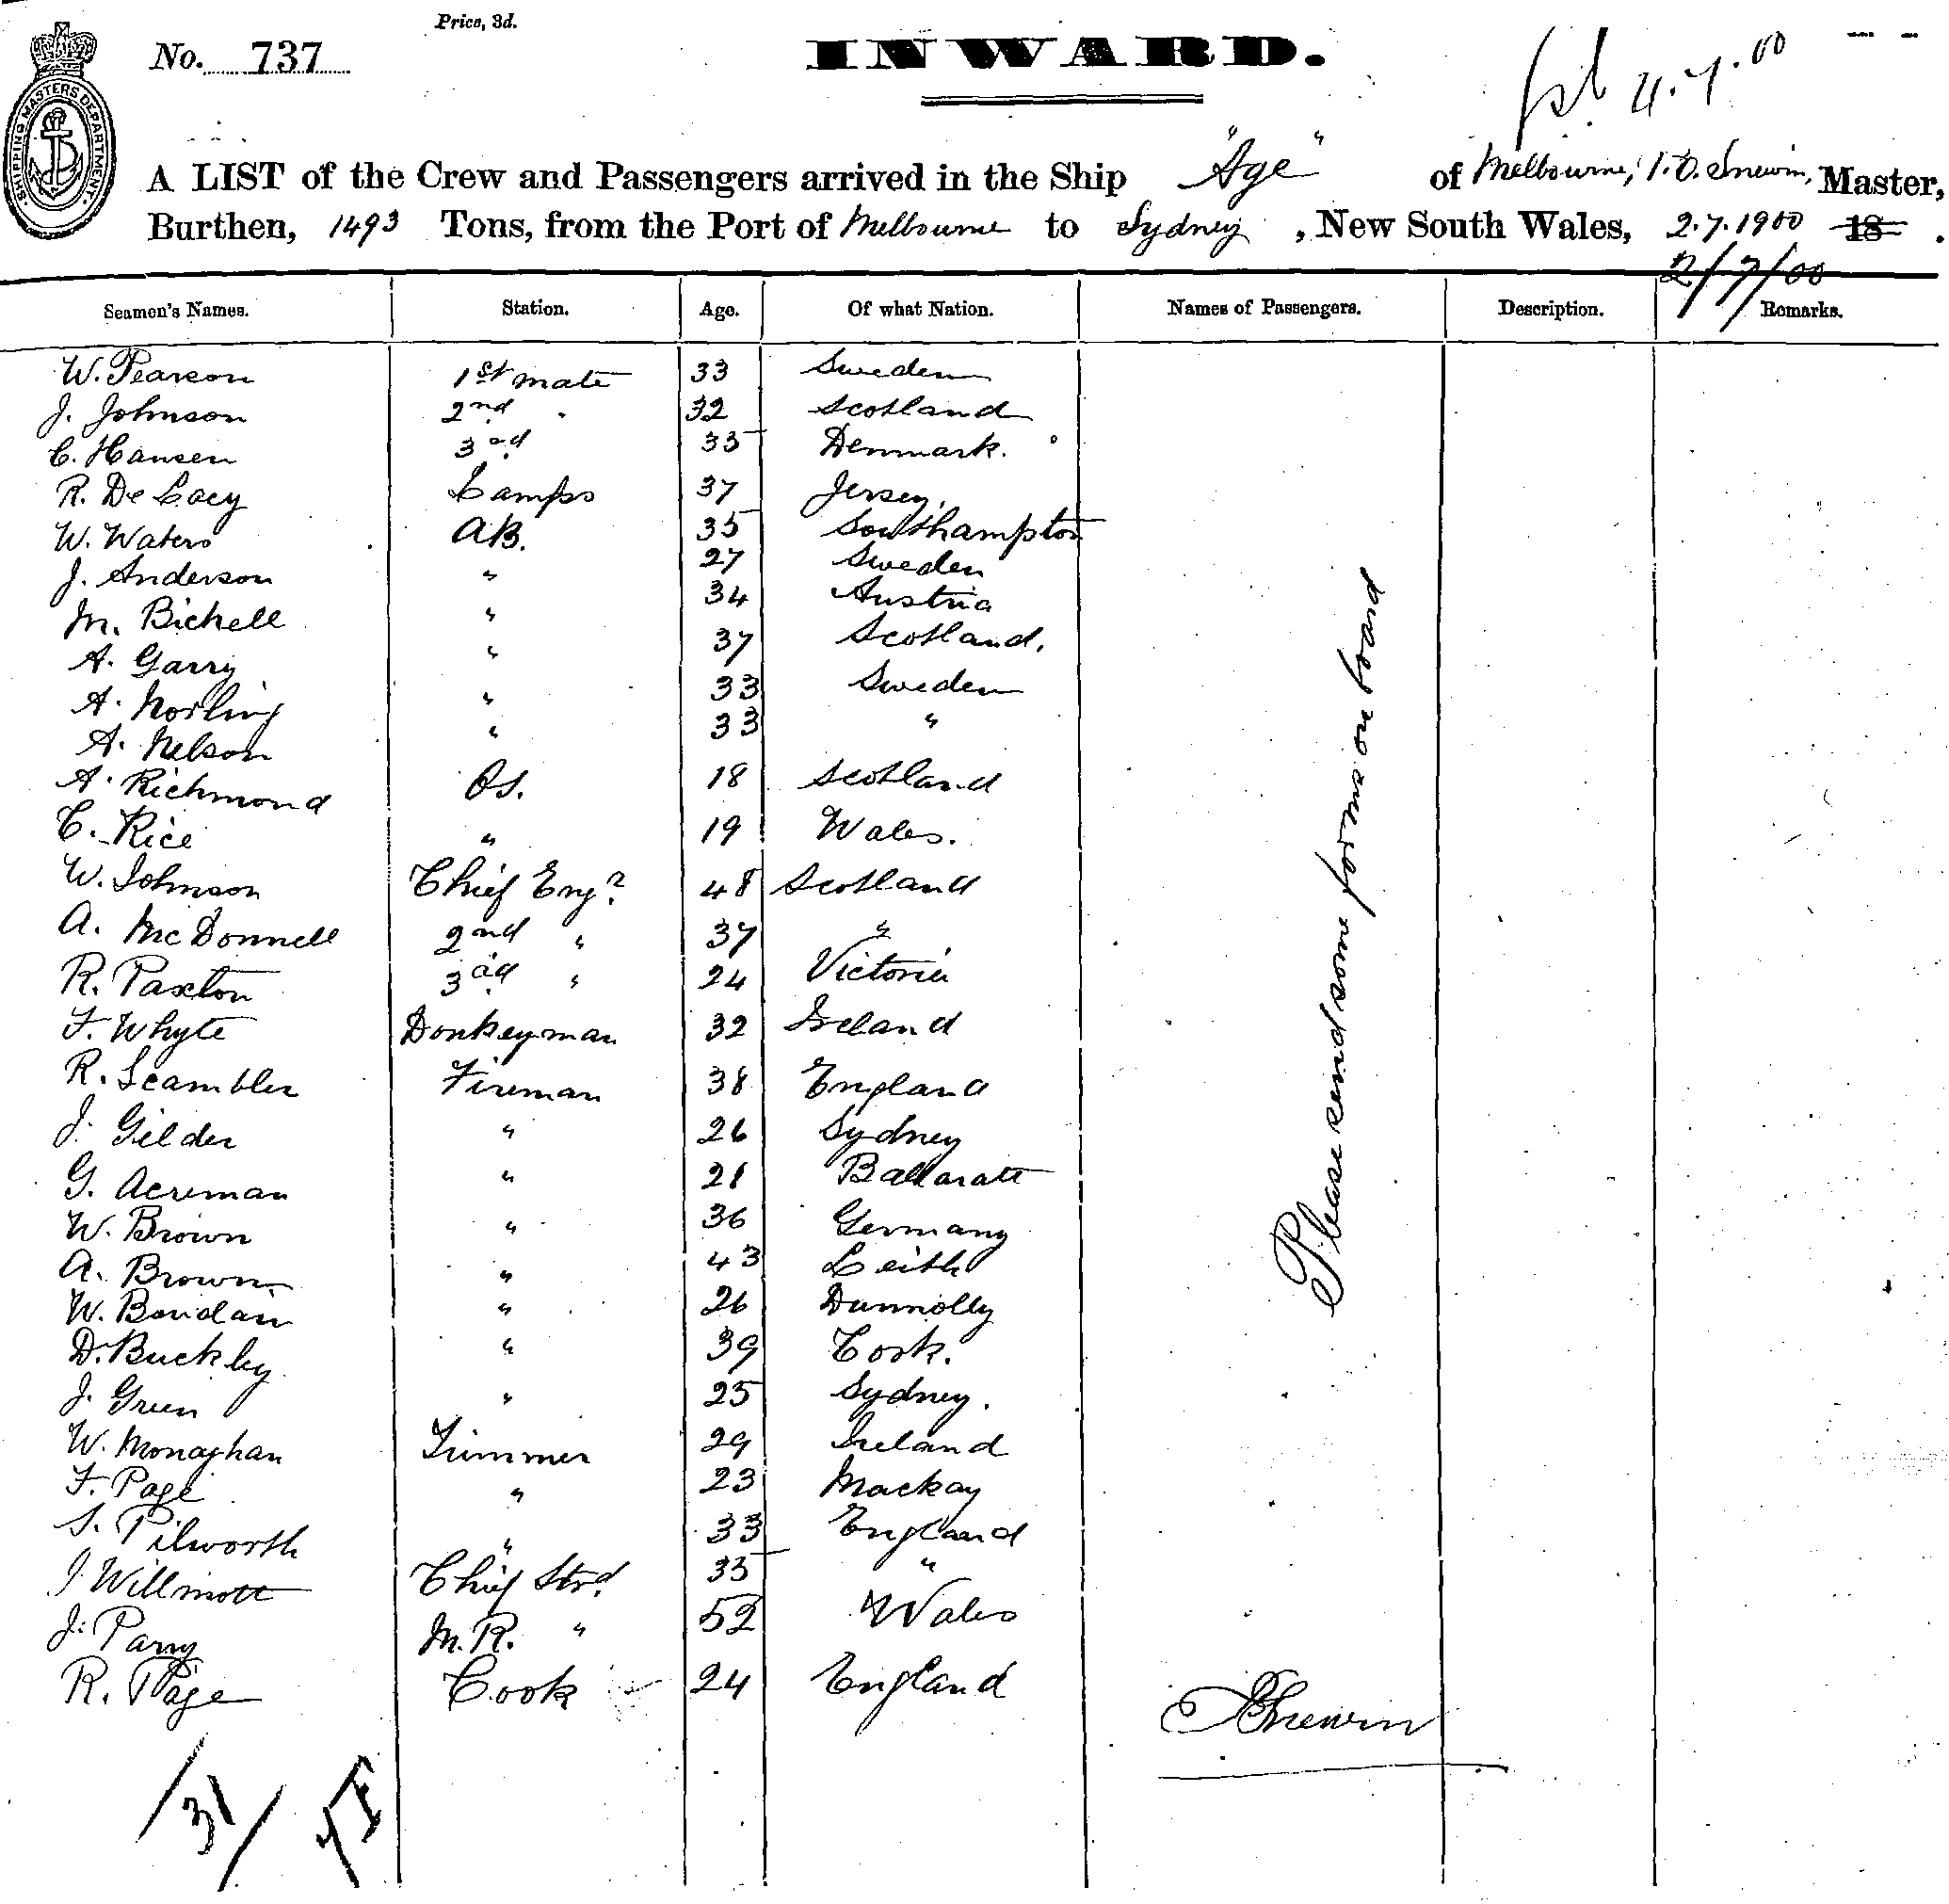 Price, 3d.
No. 737
INWARD.
4.7.00
SHIPPING MASTERS DEPARTMENT
A LIST of the Crew and Passengers arrived in the Ship "Age" of Melbourne, Master,
Burthen, 1493 Tons, from the Port of Melbourne to Sydney, New South Wales, 2.7.1900 18 .
2/7/00
Seamen's Names. Station. Age. Of what Nation. Names of Passengers. Description. Remarks.
W. Pearson 1st mate 33 Sweden
J. Johnson 2nd " 32 Scotland
C. Hansen 3rd 35 Denmark.
R. De Lacy Lamps 37 Jersey.
W. Waters AB. 35 Southampton
J. Anderson " 27 Sweden
M. Bickell " 34 Austria
A. Garry " 37 Scotland.
A. Norling " 33 Sweden
A. Nelson " 33 "
A. Richmond OS. 18 Scotland
C. Rice " 19 Wales.
W. Johnson Chief Engr 48 Scotland
A. McDonnell 2nd " 37 "
R. Paxton 3rd " 24 Victoria
F. Whyte Donkeyman 32 Ireland
R. Scambler Fireman 38 England
J. Gilder " 26 Sydney
G. Acreman " 21 Ballaratt
W. Brown " 36 Germany
A. Brown " 43 Leith
W. " 26 Dunnolly
D. Buckley " 39 Cork.
J. Green " 25 Sydney.
W. Monaghan Trimmer 29 Ireland
F. Page " 23 Mackay
S. Pilworth " 33 England
J Willmott Chief Strd. 35 "
J. Parry M.R. " 52 Wales
R. Page Cook 24 England
Please send some forms on board
31